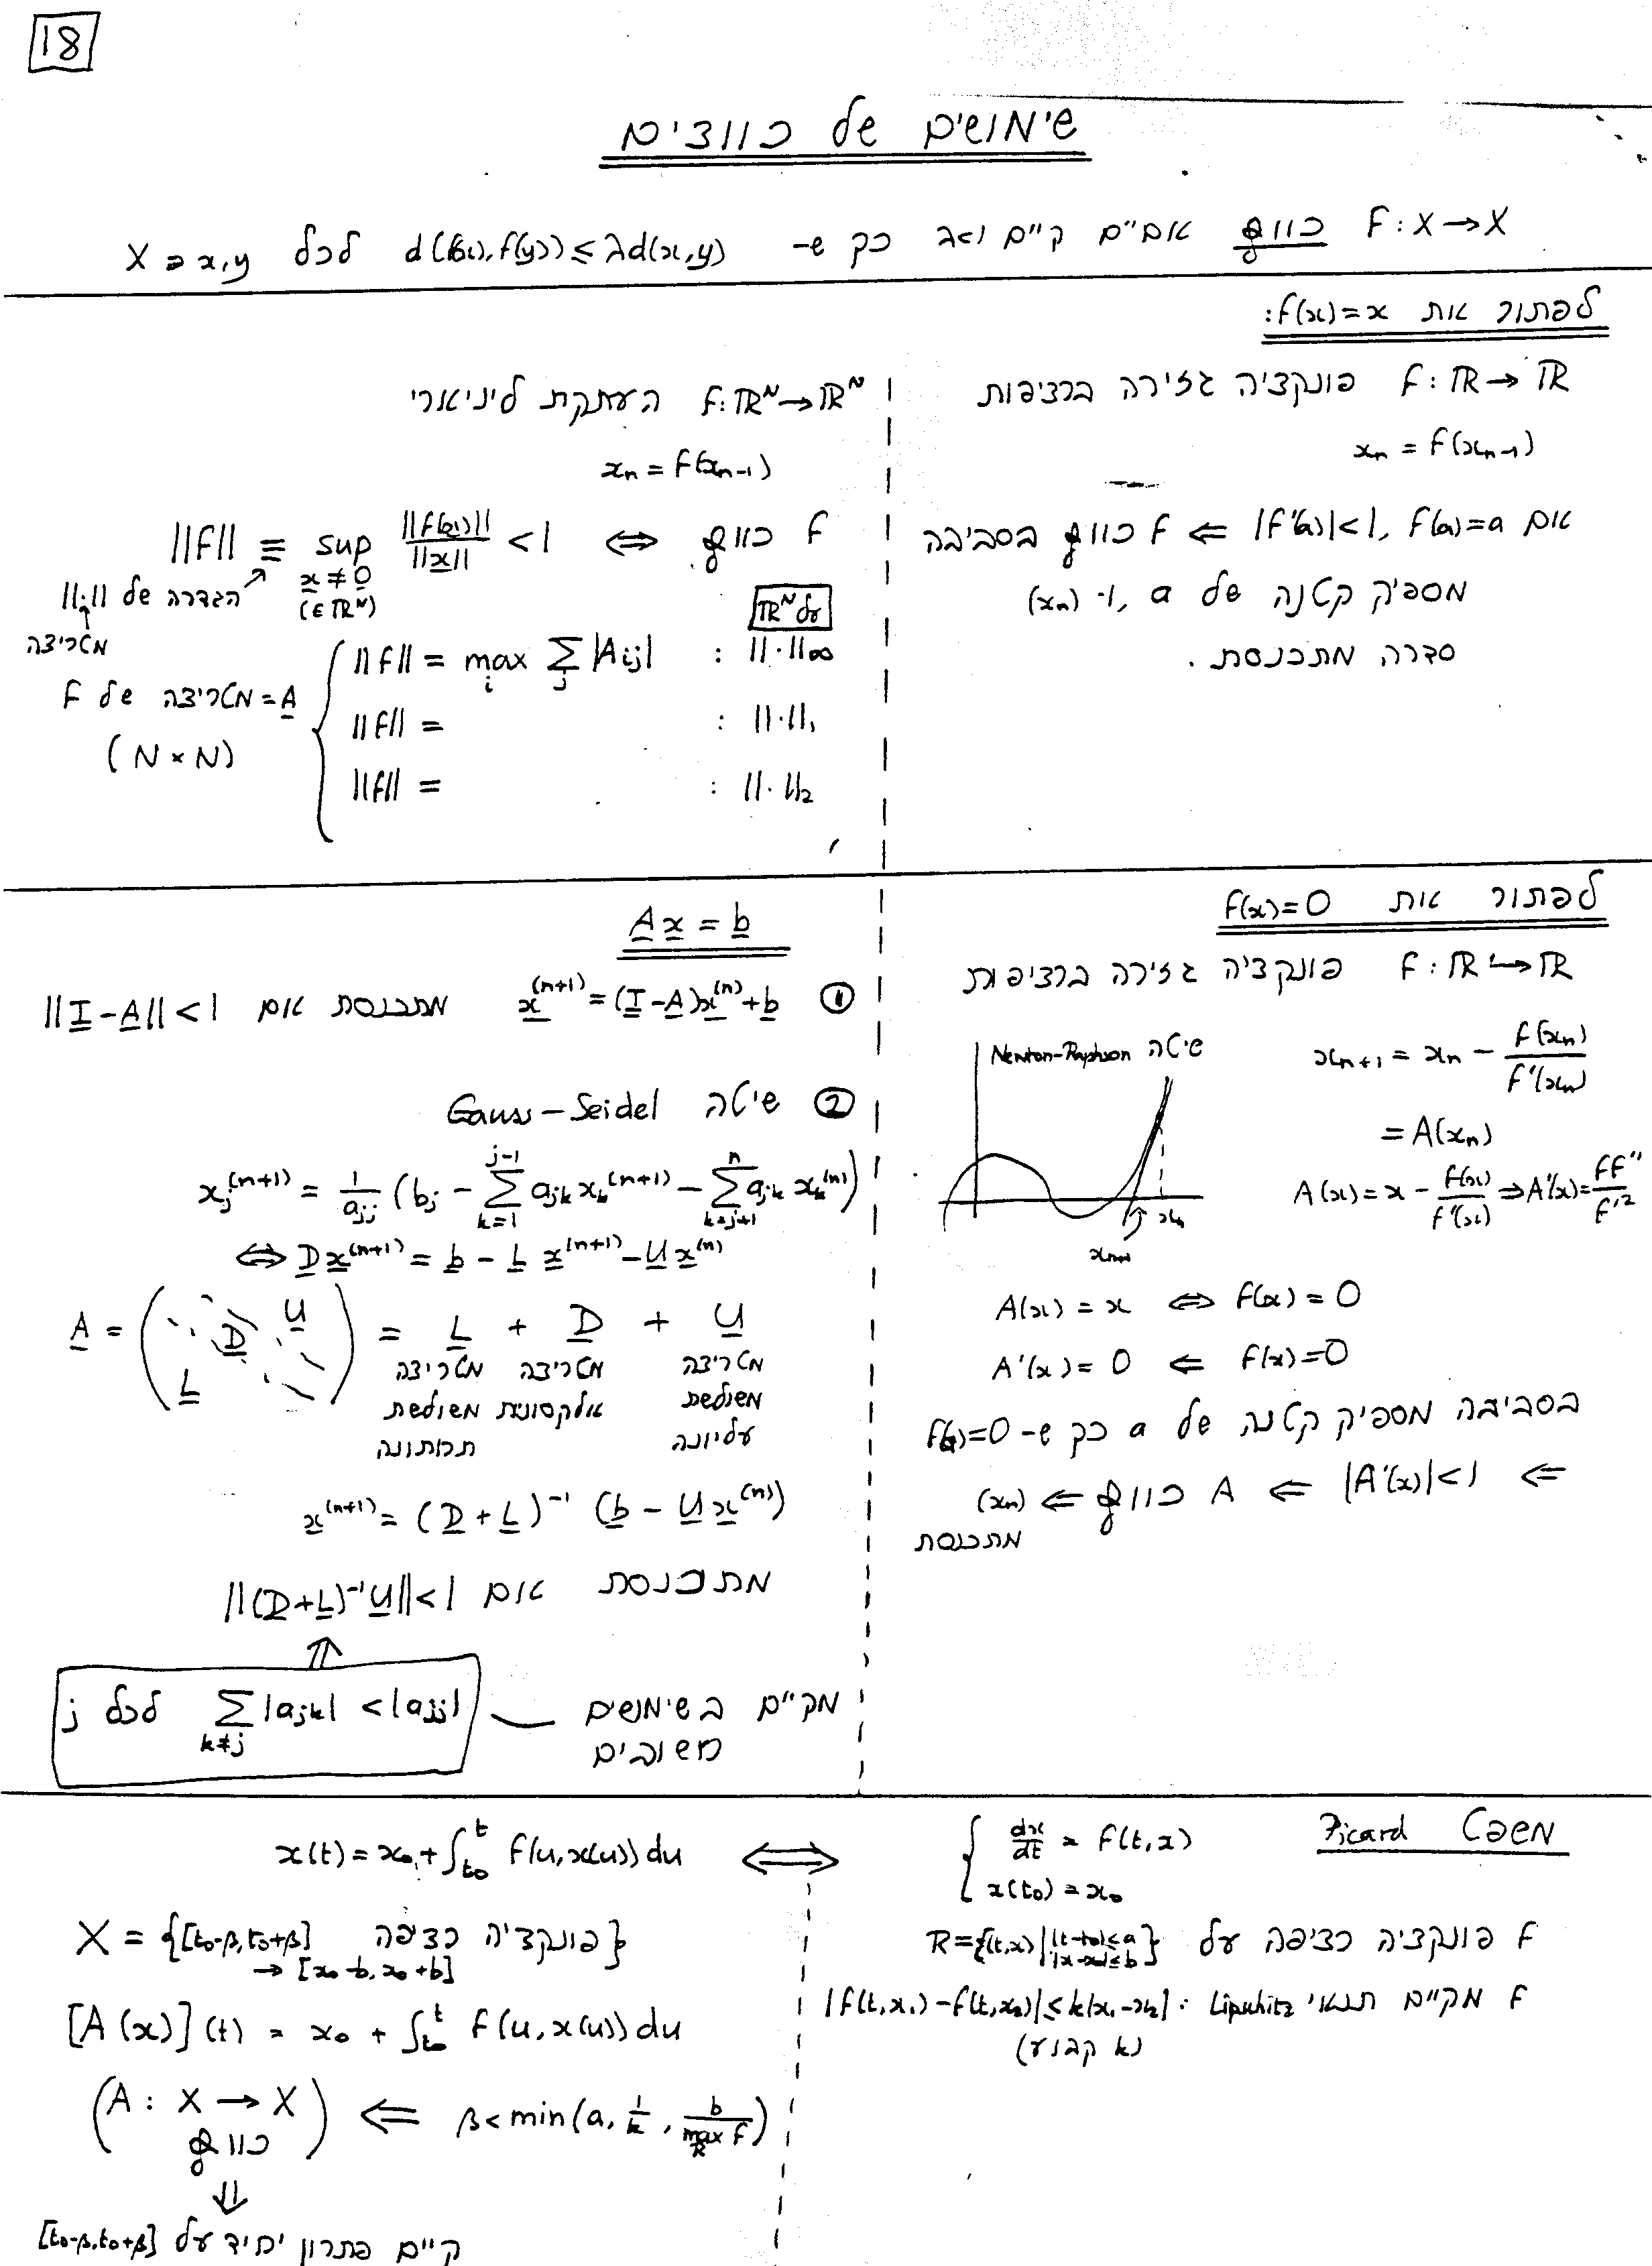 18
שימושים של כווצים
F: X → X כווץ אם"ם קיים λ<1 כך ש- d(f(x), f(y)) ≤ λd(x,y) לכל x,y ∈ X
לפתור את f(x)=x:
F: ℝ → ℝ פונקציה גזירה ברציפות
xₙ = F(xₙ₋₁)
אם F(a)=a, |F'(a)|<1 ⇐ F כווץ בסביבה
מספיק קטנה של a, ו- (xₙ)
סדרה מתכנסת.
F: ℝᴺ → ℝᴺ העתקת ליניארי
xₙ = F(xₙ₋₁)
F כווץ ⇔ ||F|| ≡ sup ||F(x)||/||x|| < 1
x ≠ 0
(∈ ℝᴺ)
הגדרה של ||·||
מטריצה
על ℝᴺ
||·||∞ : ||F|| = max_i Σ_j |Aij|
||·||₁ : ||F|| =
||·||₂ : ||F|| =
A = מטריצה של F
(N × N)
לפתור את F(x)=0
F: ℝ → ℝ פונקציה גזירה ברציפות
שיטה Newton-Raphson
xₙ₊₁ = xₙ - f(xₙ)/f'(xₙ)
= A(xₙ)
A(x) = x - f(x)/f'(x) ⇒ A'(x) = FF''/F'²
xₙ
xₙ₊₁
A(x) = x ⇔ F(x) = 0
A'(x) = 0 ⇐ F(x)=0
בסביבה מספיק קטנה של a כך ש- F(a)=0
⇐ |A'(x)|<1 ⇐ A כווץ ⇐ (xₙ)
מתכנסת
A x = b
① x⁽ⁿ⁺¹⁾ = (I - A)x⁽ⁿ⁾ + b מתכנסת אם ||I - A|| < 1
② שיטה Gauss-Seidel
xⱼ⁽ⁿ⁺¹⁾ = 1/aⱼⱼ (bⱼ - Σ_{k=1}^{j-1} aⱼₖ xₖ⁽ⁿ⁺¹⁾ - Σ_{k=j+1}^{n} aⱼₖ xₖ⁽ⁿ⁾)
⇔ D x⁽ⁿ⁺¹⁾ = b - L x⁽ⁿ⁺¹⁾ - U x⁽ⁿ⁾
A = ( L D U ) = L + D + U
מטריצה מטריצה מטריצה
משולשת אלקסונית משולשת
עליונה תחתונה
x⁽ⁿ⁺¹⁾ = (D + L)⁻¹ (b - U x⁽ⁿ⁾)
מתכנסת אם ||(D+L)⁻¹U|| < 1
⇑
Σ_{k≠j} |aⱼₖ| < |aⱼⱼ| לכל j
מקיים בשימושים
חשובים
משפט Picard
{ dx/dt = F(t,x)
x(t₀) = x₀
⇔ x(t) = x₀ + ∫_{t₀}^{t} f(u,x(u)) du
F פונקציה רציפה על R = {(t,x) | |t-t₀|≤a |x-x₀|≤b}
F מקיים תנאי Lipschitz : |f(t,x₁) - f(t,x₂)| ≤ k|x₁-x₂|
(k קבוע)
X = {פונקציה רציפה [t₀-β, t₀+β]
→ [x₀-b, x₀+b]}
[A(x)](t) = x₀ + ∫_{t₀}^{t} f(u,x(u)) du
(A: X → X כווץ) ⇐ β < min(a, 1/k, b/max_R F)
⇓
קיים פתרון יחיד על [t₀-β, t₀+β]